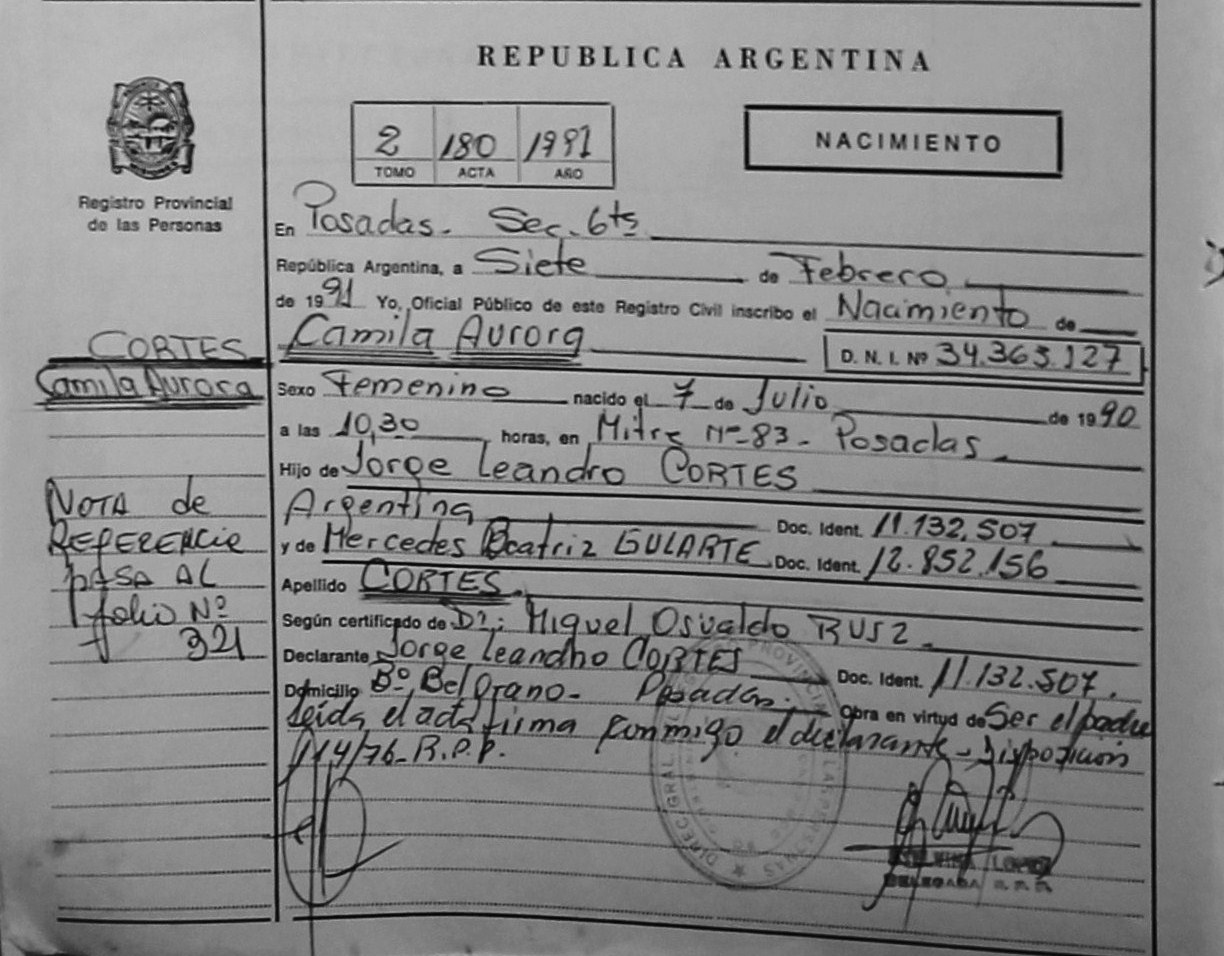 REPUBLICA ARGENTINA
2 180 1991
TOMO ACTA AÑO
NACIMIENTO
Registro Provincial
de las Personas
En Posadas. Sec. 6ta
República Argentina, a Siete de Febrero
de 1991 Yo, Oficial Público de este Registro Civil inscribo el Nacimiento de
Camila Aurora
D. N. I. Nº 34.363.127
CORTES
Camila Aurora
Sexo Femenino nacido el 7 de Julio de 1990
a las 10,30 horas, en Mitre Nº 83 - Posadas.
Hijo de Jorge Leandro CORTES
Argentina Doc. Ident. 11.132.507
y de Mercedes Beatriz GULARTE Doc. Ident. 12.852.156
Apellido CORTES.
Según certificado de Dr.: Miguel Osvaldo
Declarante Jorge Leandro CORTES Doc. Ident. 11.132.507.
Domicilio Bº Belgrano - Posadas. Obra en virtud de Ser el padre
leida el acta firma conmigo el declarante - Disposición
114/76 - R.P.P.
NOTA de
REFERENCIA
PASA AL
folio Nº
321
LOPEZ
DELEGADA